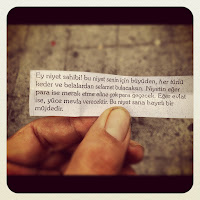 Ey niyet sahibi! bu niyet senin için büyüden, her türlü
keder ve belalardan selamet bulacaksın. Niyetin eğer
para ise merak etme eline çok para geçecek. Eğer evlat
ise, yüce mevla verecektir. Bu niyet sana büyük bir
müjdedir.